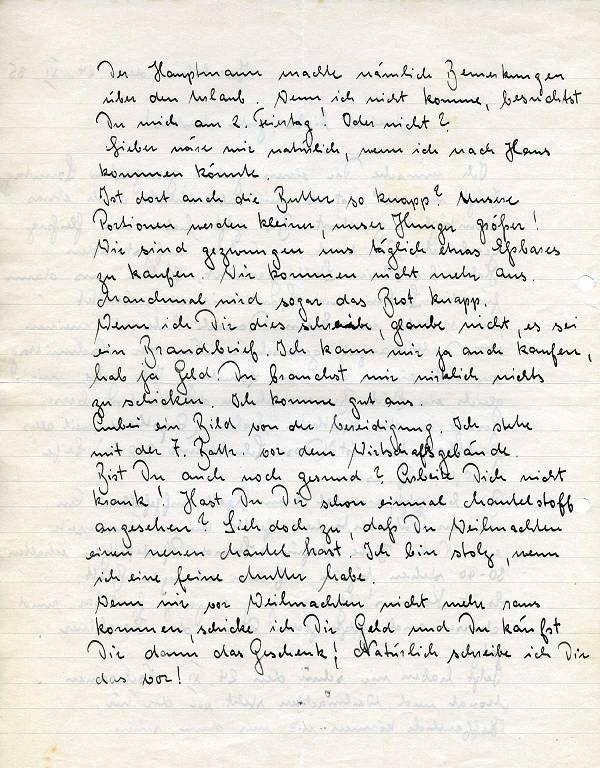 Der Hauptmann machte nämlich Bemerkungen
über den Urlaub. Wenn ich nicht komme, besuchst
Du mich am 2. Feiertag! Oder nicht?
Lieber wäre mir natürlich, wenn ich nach Haus
kommen könnte.
Ist dort auch die Butter so knapp? Unsere
Portionen werden kleiner unser Hunger größer!
Wir sind gezwungen uns täglich etwas Eßbares
zu kaufen. Wir kommen nicht mehr aus.
Manchmal wird sogar das Brot knapp.
Wenn ich Dir dies schreibe, glaube nicht, es sei
ein Brandbrief. Ich kann mir ja auch kaufen,
hab ja Geld. Du brauchst mir wirklich nichts
zu schicken. Ich komme gut aus.
Anbei ein Bild von der Vereidigung. Ich stehe
mit der 7. Battr. vor dem Wirtschaftsgebäude.
Bist Du auch noch gesund? Arbeite Dich nicht
krank! Hast Du Dir schon einmal Mantelstoff
angesehen? Sieh doch zu, daß Du Weihnachten
einen neuen Mantel hast. Ich bin stolz, wenn
ich eine feine Mutter habe.
Wenn wir vor Weihnachten nicht mehr raus
kommen, schicke ich Dir Geld und Du käufst
Dir dann das Geschenk! Natürlich schreibe ich Dir
das vor!